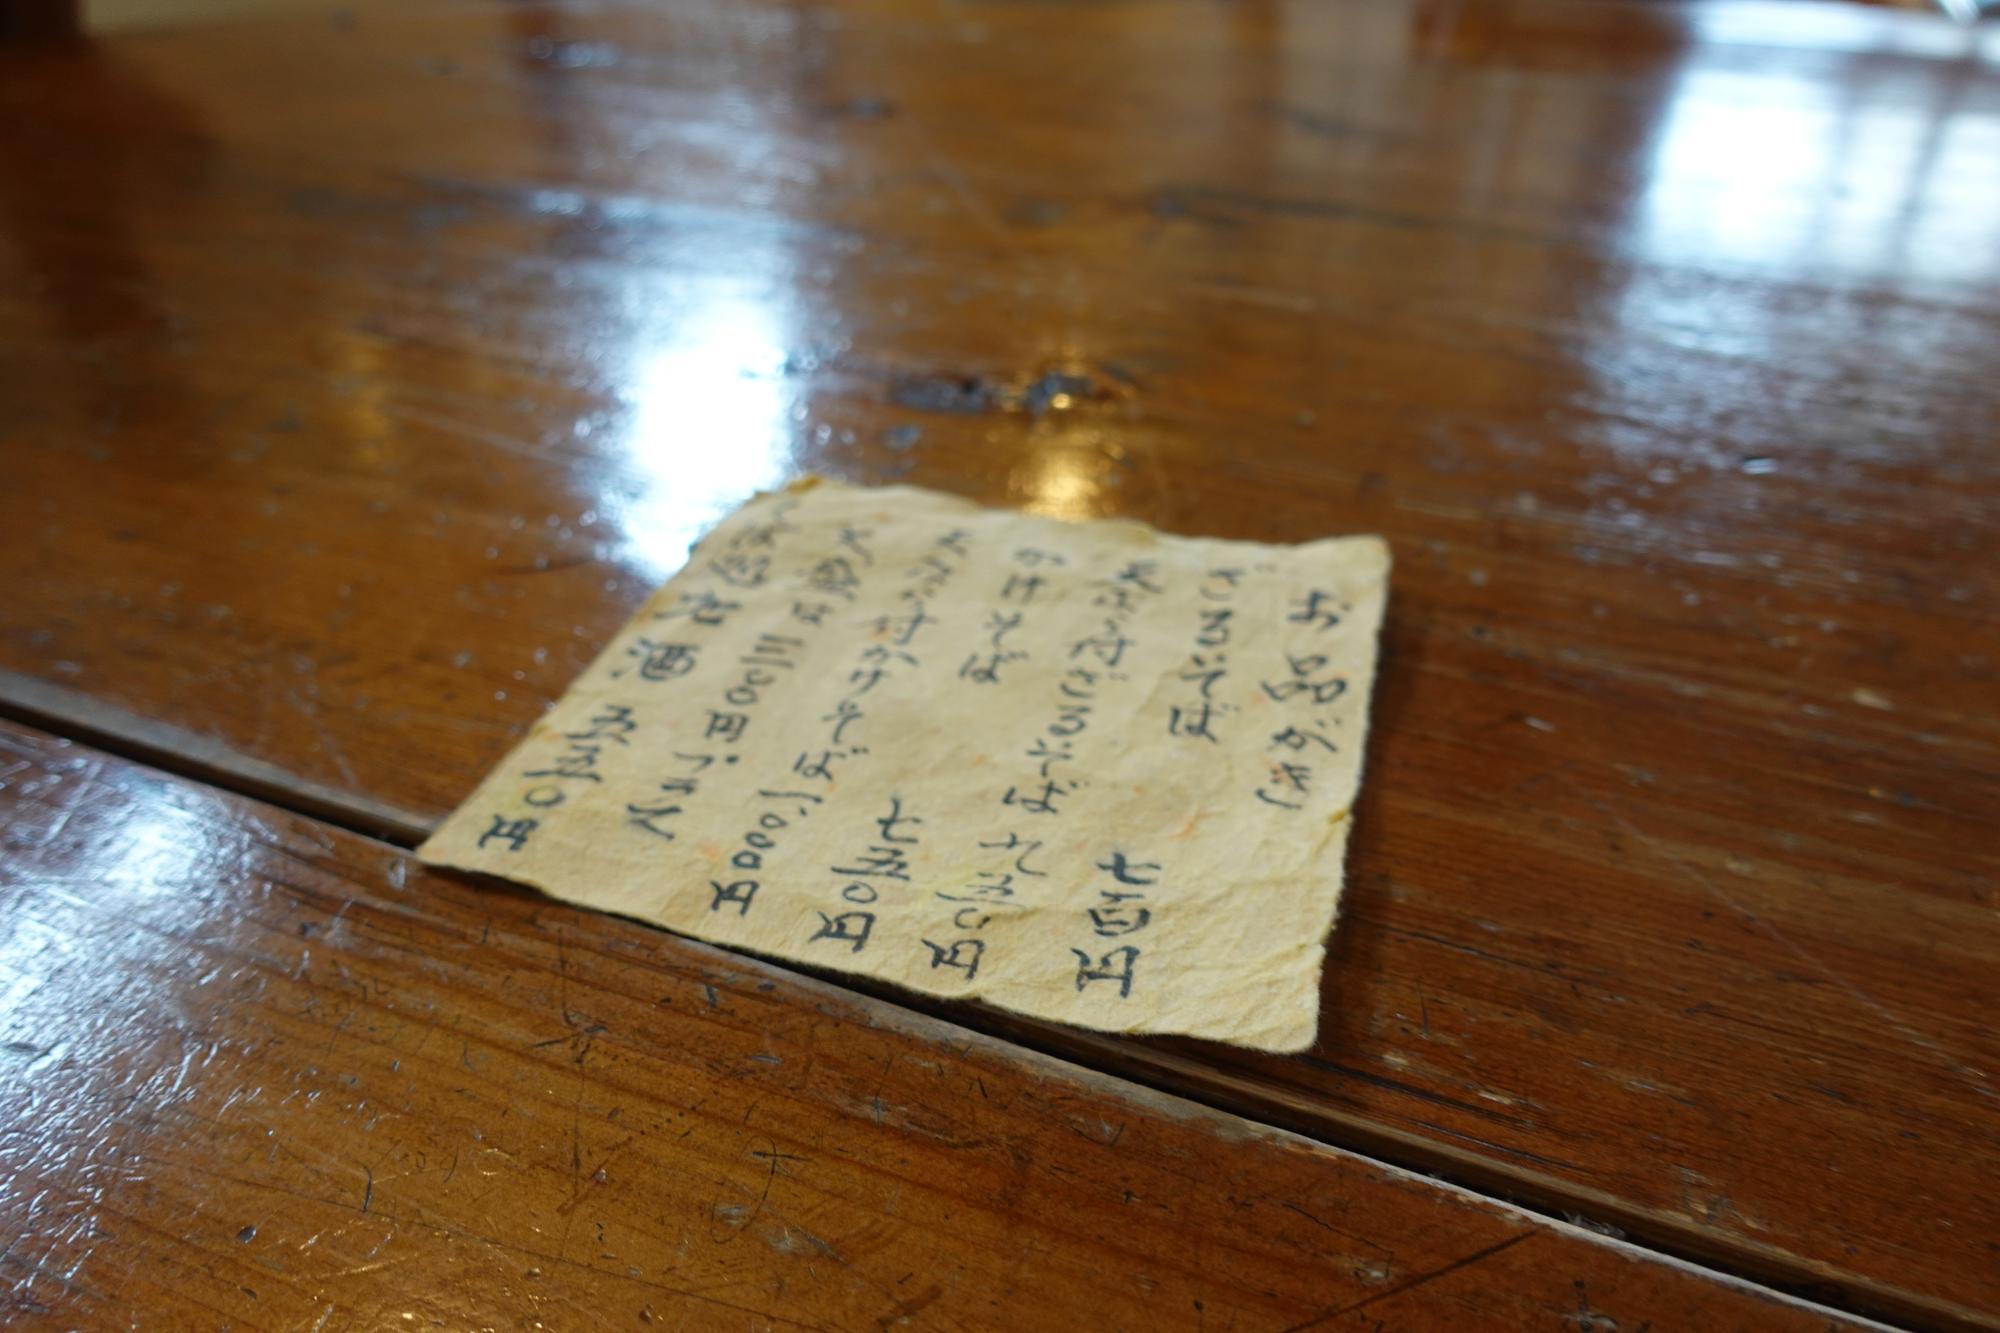 お品がき
ざるそば 七四〇円
天ぷら付ざるそば
かけそば 七五〇円
天ぷら付かけそば 一、〇〇〇円
大盛は三〇〇円プラス
酒 五五〇円